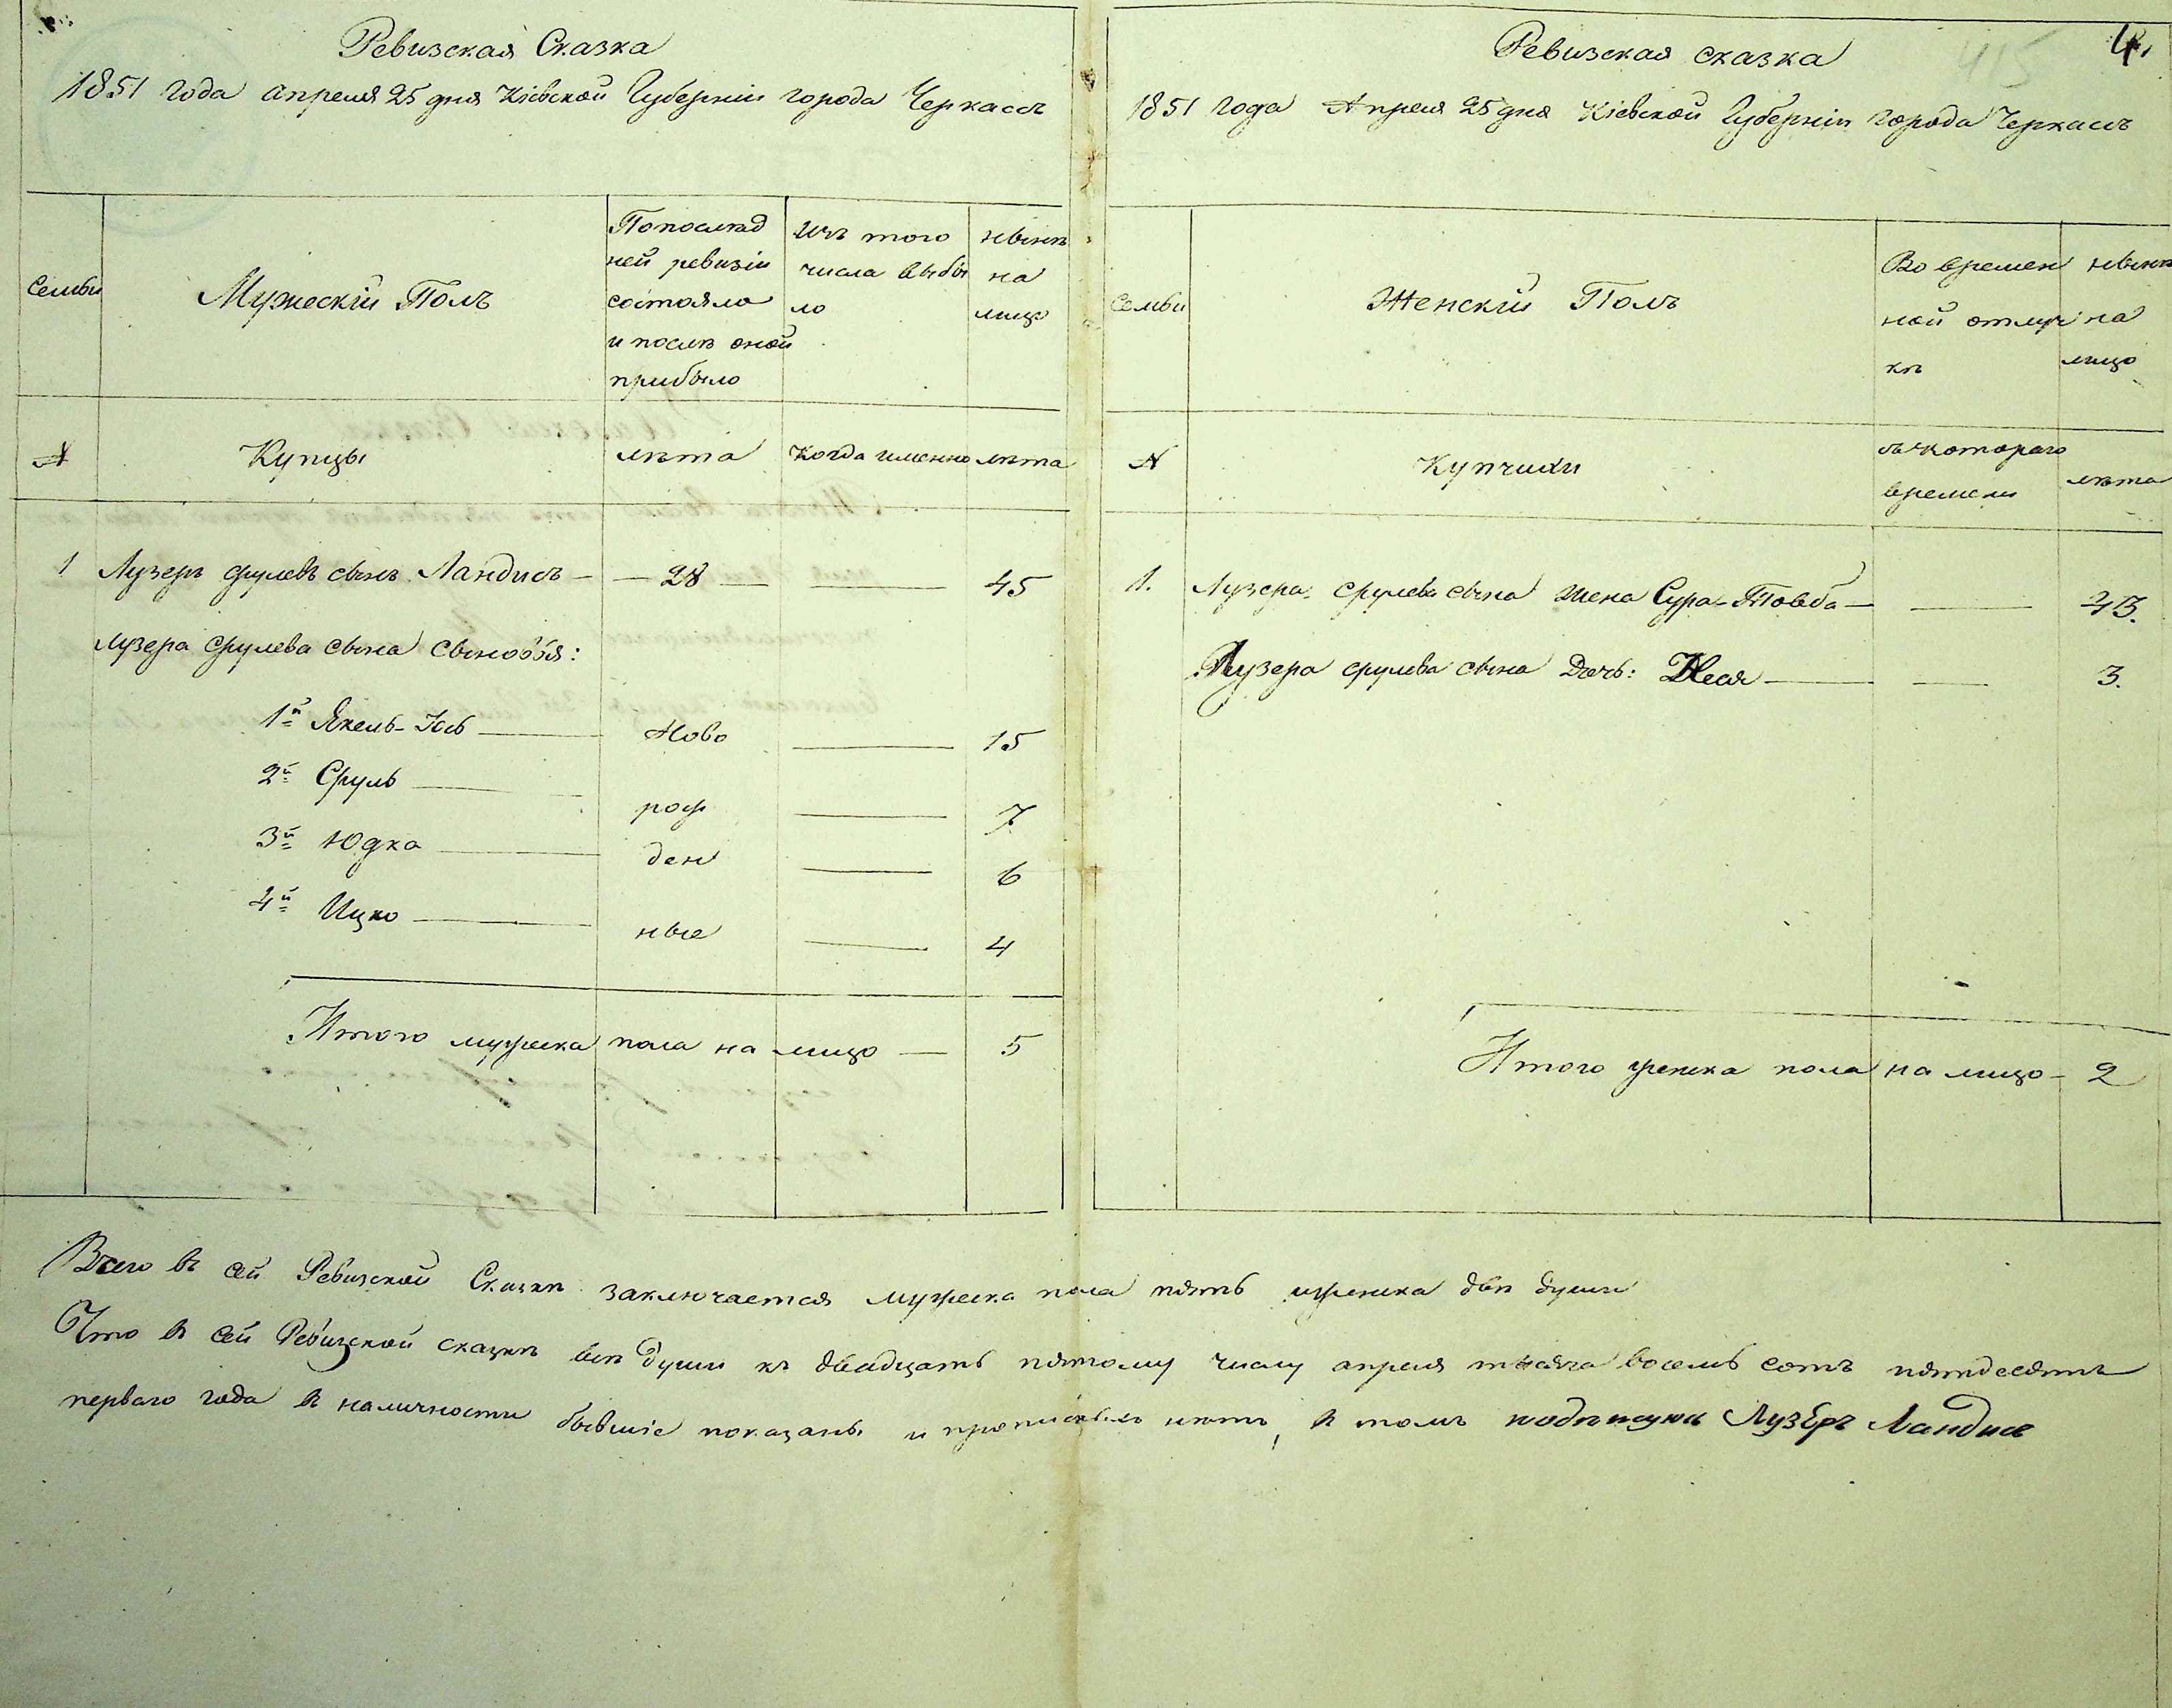 Ревизская Сказка
1851 года апреля 25 дня Кіевской Губерніи города Черкасъ
Семьи
Мужескій Полъ
По послѣд
ней ревизіи
состояло
и послѣ оной
прибыло
Изъ того
числа выбы
ло
нынѣ
на
лицо
№
Купцы
лѣта
Когда именно
лѣта
1 Лузеръ Срулевъ сынъ Ландисъ — 28 — — 45
Лузера Срулева сына сыновья:
1й Янкель-Іось — Ново — 15
2й Сруль — рож — 7
3й Юдка — ден — 6
4й Ицко — ные — 4
Итого мужеска пола на лицо — 5
415 4.
Ревизская сказка
1851 года Апреля 25 дня Кіевской Губерніи города Черкасъ
Семьи
Женскій Полъ
Во времен
ной отлуч
кѣ
нынѣ
на
лицо
№
Купчихи
съ котораго
времени
лѣта
1. Лузера Срулева сына жена Сура-Товба — — 43.
Лузера Срулева сына дочь: — — 3.
Итого женска пола на лицо — 2
Всего въ сей Ревизской Сказкѣ заключается мужеска пола пять женска двѣ души
Что в сей Ревизской сказкѣ всѣ души къ двадцать пятому числу апреля тысяча восемь сотъ пятдесятъ
перваго года в наличности бывшіе показаны и прописныхъ нѣтъ, в томъ подписуюсь Лузеръ Ландис